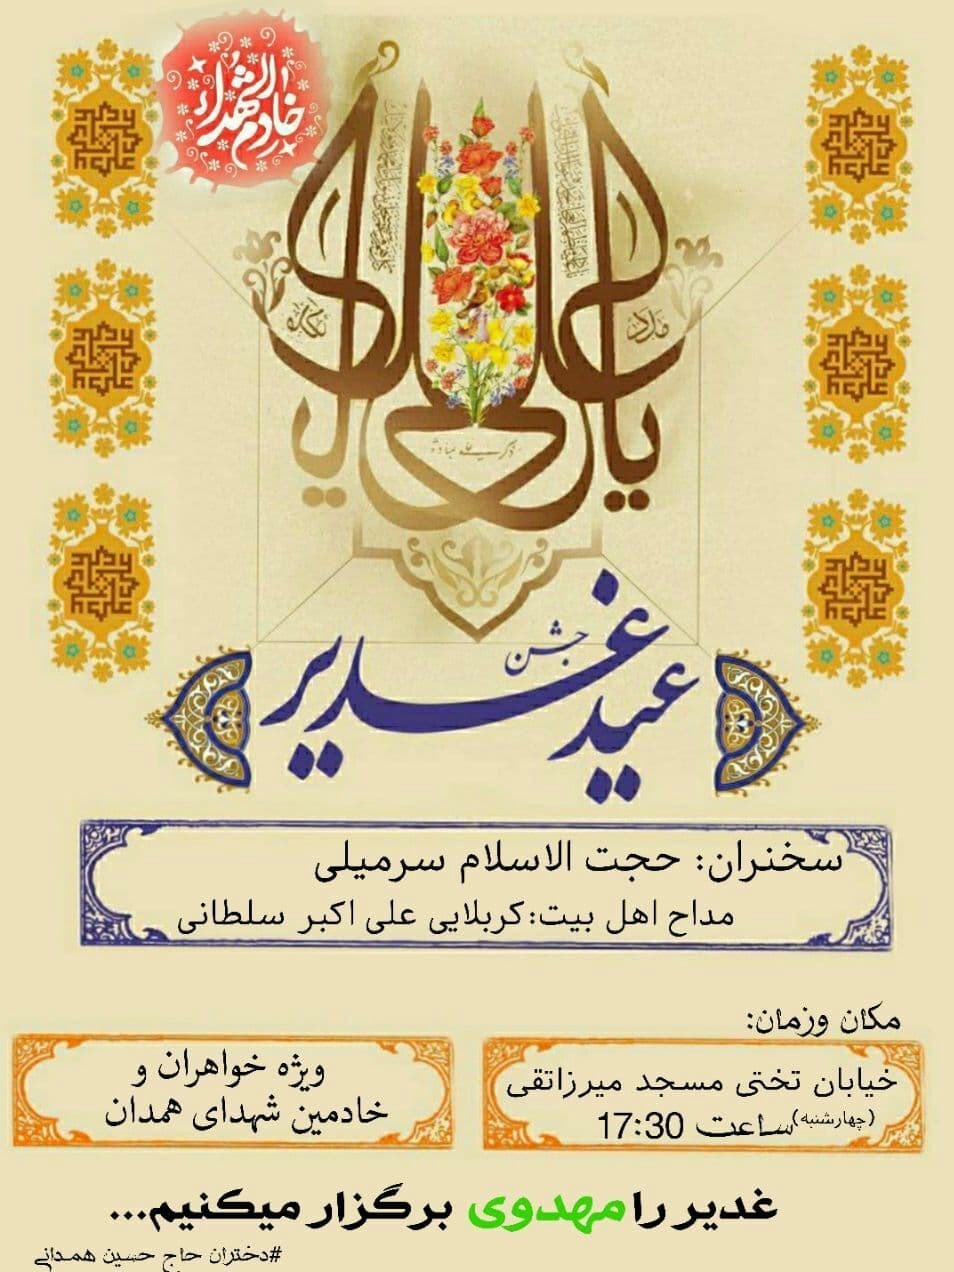 خادم الشهداء
یا علی
مدد
ذکر علی عبادة
جشن
عید غدیر
سخنران: حجت الاسلام سرمیلی
مداح اهل بیت:کربلایی علی اکبر سلطانی
مکان وزمان:
خیابان تختی مسجد میرزاتقی
(چهارشنبه)ساعت 17:30
ویژه خواهران و
خادمین شهدای همدان
غدیر را مهدوی برگزار میکنیم...
#دختران حاج حسین همدانی